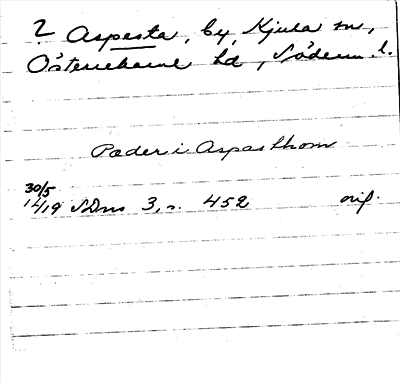 ? Aspesta, by, Kjula sn,
Österrekarne hd, Söderm. l.
Pæder i Aspasthom
30/5
1419 SDns 3, s. 452 orig.